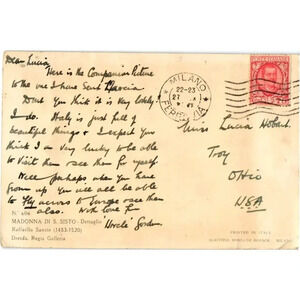 Dear Lucia
Here is the Companion Picture
to the one I have sent Marcia
Dont you think it is very lovely
I do. Italy is just full of
beautiful things & I expect you
think I am very lucky to be able
to visit them & see them for myself.
Well perhaps when you have
grown up you will all be able
to fly across to Europe & see them
also. With love from
"Uncle" Gordon
Miss Lucia Hobart
Troy
Ohio
USA
MILANO
22-23
27
FERROVIA
POSTE ITALIANE
N. 406
MADONNA DI S. SISTO - Dettaglio
Raffaello Sanzio (1483-1520)
Dresda, Regia Galleria
PRINTED IN ITALY